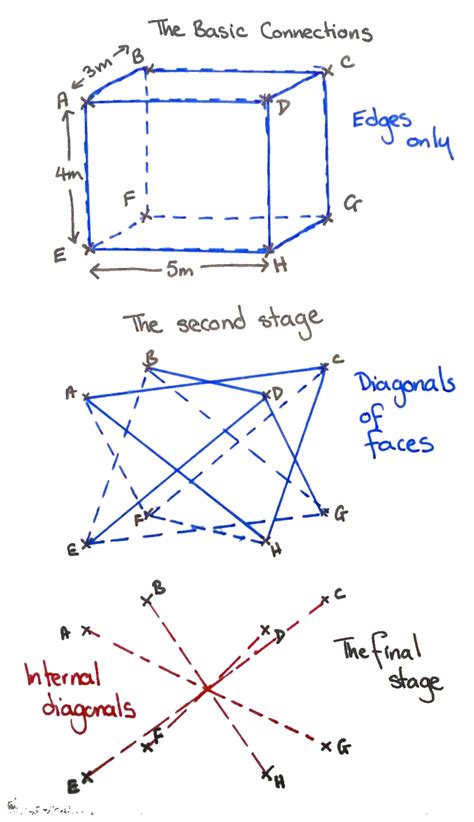 The Basic Connections
3m
B
C
A
D
Edges
only
4m
F
G
E
H
5m
The second stage
B
C
A
D
Diagonals
of
faces
F
G
E
H
B
C
A
D
The final
stage
Internal
diagonals
F
G
E
H